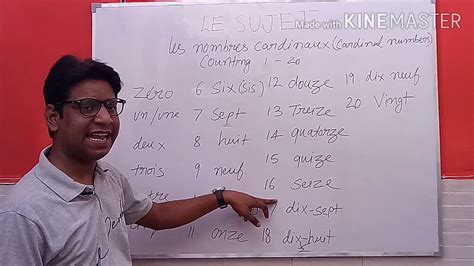 Made with KINEMASTER
LE SUJET
Les nombres cardinaux (Cardinal numbers)
Counting 1 - 20
Zéro 6 Six (sis) 12 douze 19 dix neuf
un/une 7 Sept 13 Treize 20 Vingt
deux 8 huit 14 quatorze
trois 9 neuf 15 quize
16 seize
dix-sept
11 onze 18 dix-huit